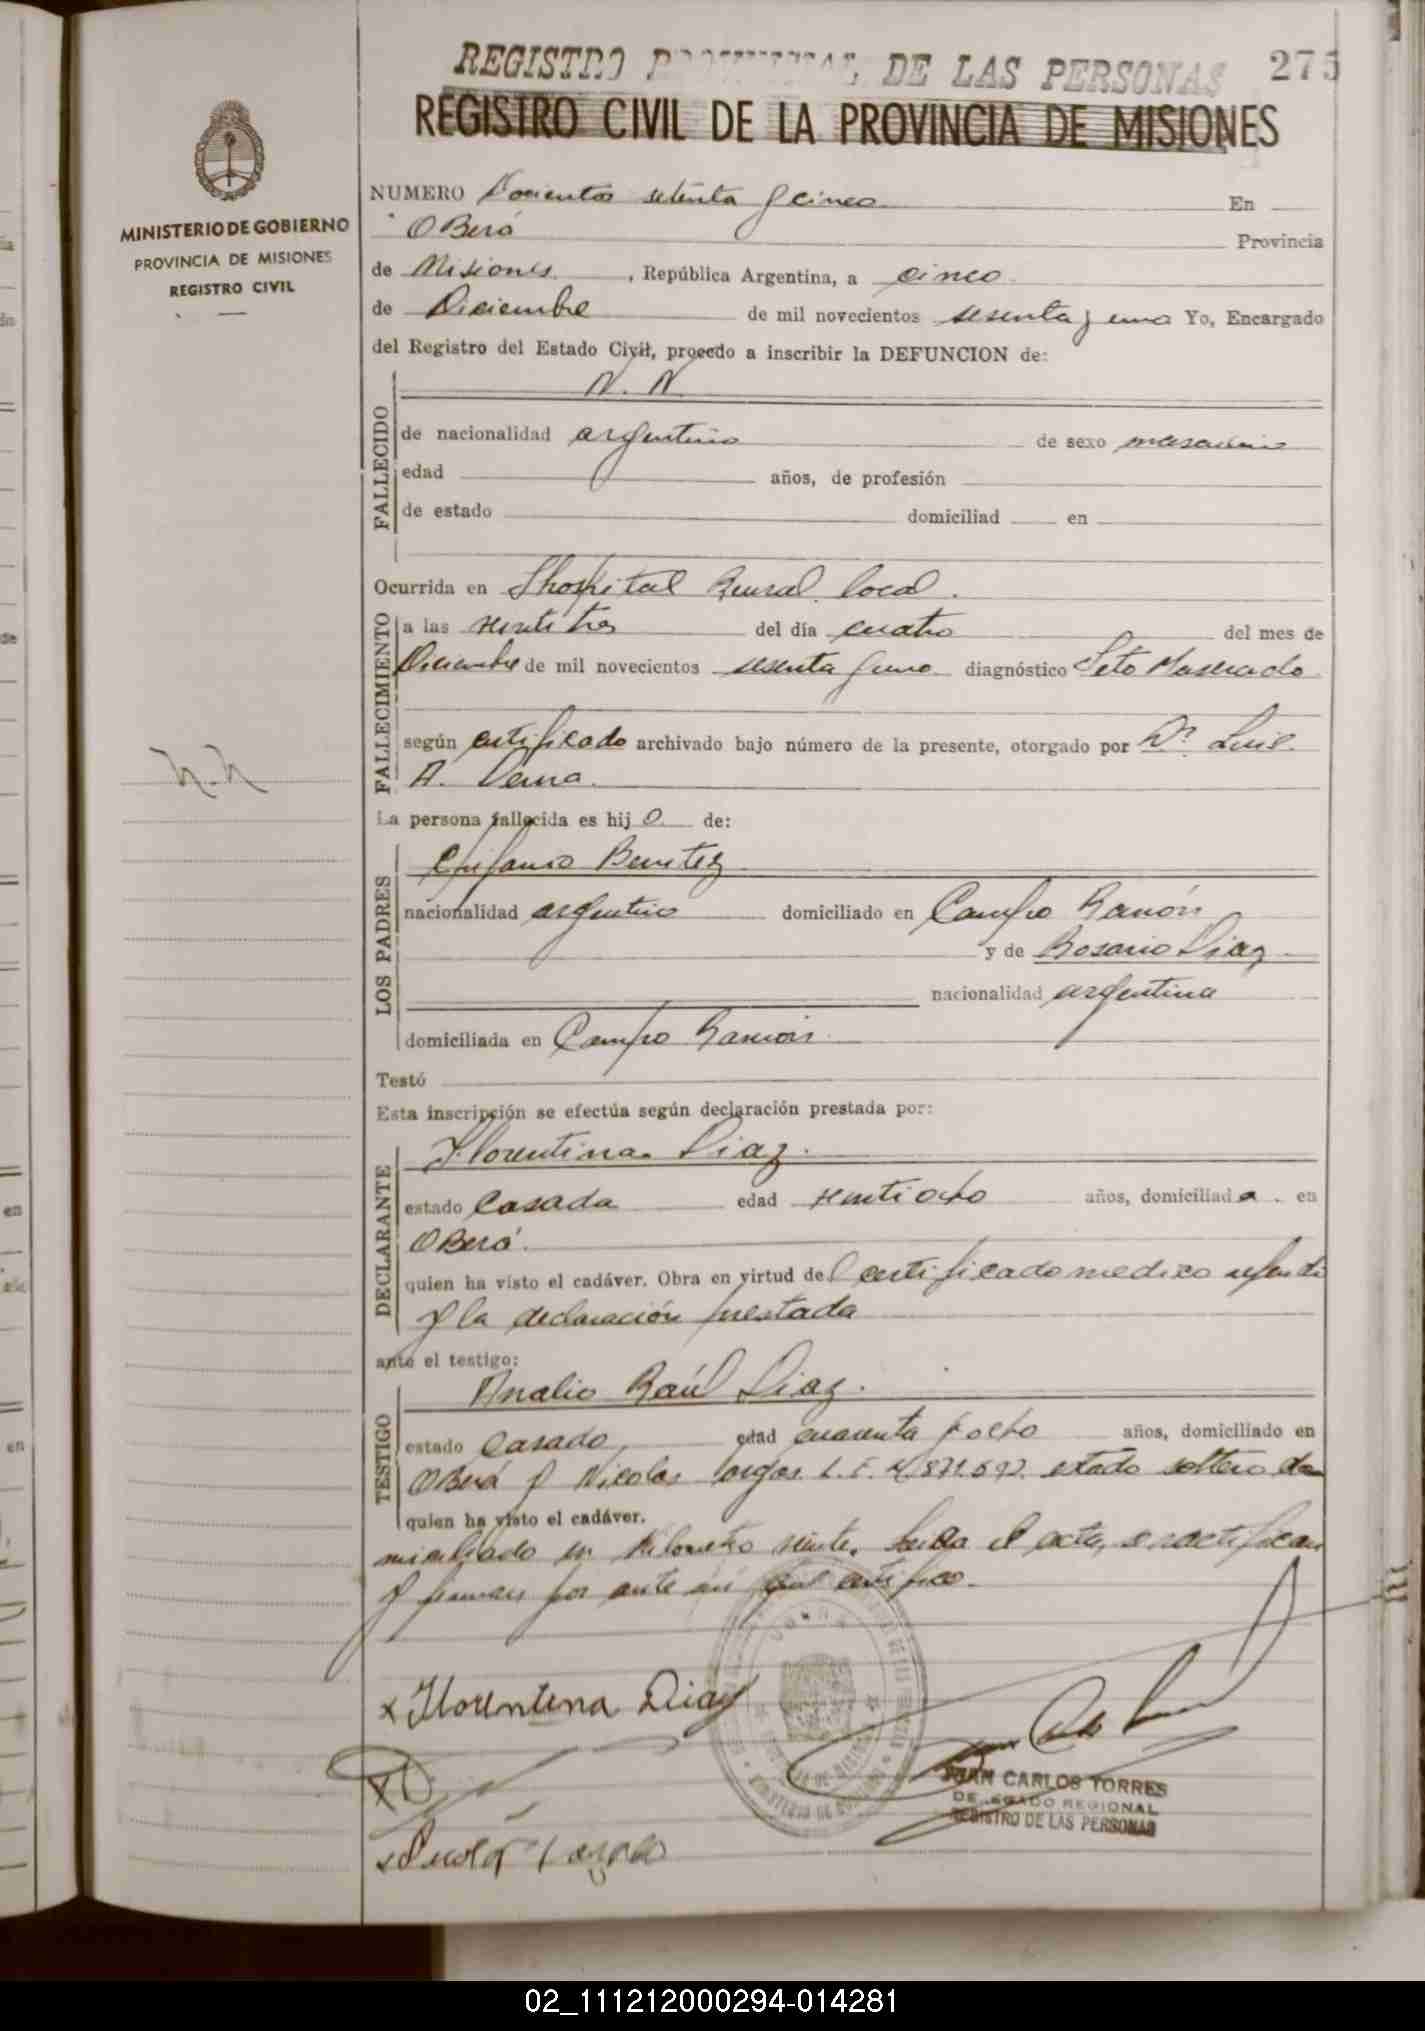 REGISTRO PROVINCIAL DE LAS PERSONAS 275
REGISTRO CIVIL DE LA PROVINCIA DE MISIONES
MINISTERIO DE GOBIERNO
PROVINCIA DE MISIONES
REGISTRO CIVIL
NUMERO Docientos setenta y cinco En
OBerá Provincia
de Misiones, República Argentina, a cinco
de Diciembre de mil novecientos sesenta y uno Yo, Encargado
del Registro del Estado Civil, procedo a inscribir la DEFUNCION de:
N. N.
FALLECIDO
de nacionalidad argentino de sexo masculino
edad años, de profesión
de estado domiciliad en
Ocurrida en Lhospital Rural local.
FALLECIMIENTO
a las veintitres del día cuatro del mes de
Diciembre de mil novecientos sesenta y uno diagnóstico Feto Maserado
según certificado archivado bajo número de la presente, otorgado por Dr. Luis
A.
N-N
La persona fallecida es hijo de:
LOS PADRES
Epifanio Benitez
nacionalidad argentino domiciliado en Campo Ramón
y de Rosario Diaz
nacionalidad argentina
domiciliada en Campo Ramón
Testó
Esta inscripción se efectúa según declaración prestada por:
DECLARANTE
Florentina Diaz.
estado Casada edad veintiocho años, domiciliada en
OBerá.
quien ha visto el cadáver. Obra en virtud del certificado medico
y la declaración prestada
ante el testigo:
TESTIGO
Analio Raúl Diaz.
estado Casado, edad cuarenta y ocho años, domiciliado en
OBerá y Nicolas L.E. estado soltero do
quien ha visto el cadáver.
miciliado en Kilometro veinte. Leida el acta, se ractifican
y firman por ante mí que certifico.
x Florentina Diaz
JUAN CARLOS TORRES
DELEGADO REGIONAL
REGISTRO DE LAS PERSONAS
02_111212000294-014281